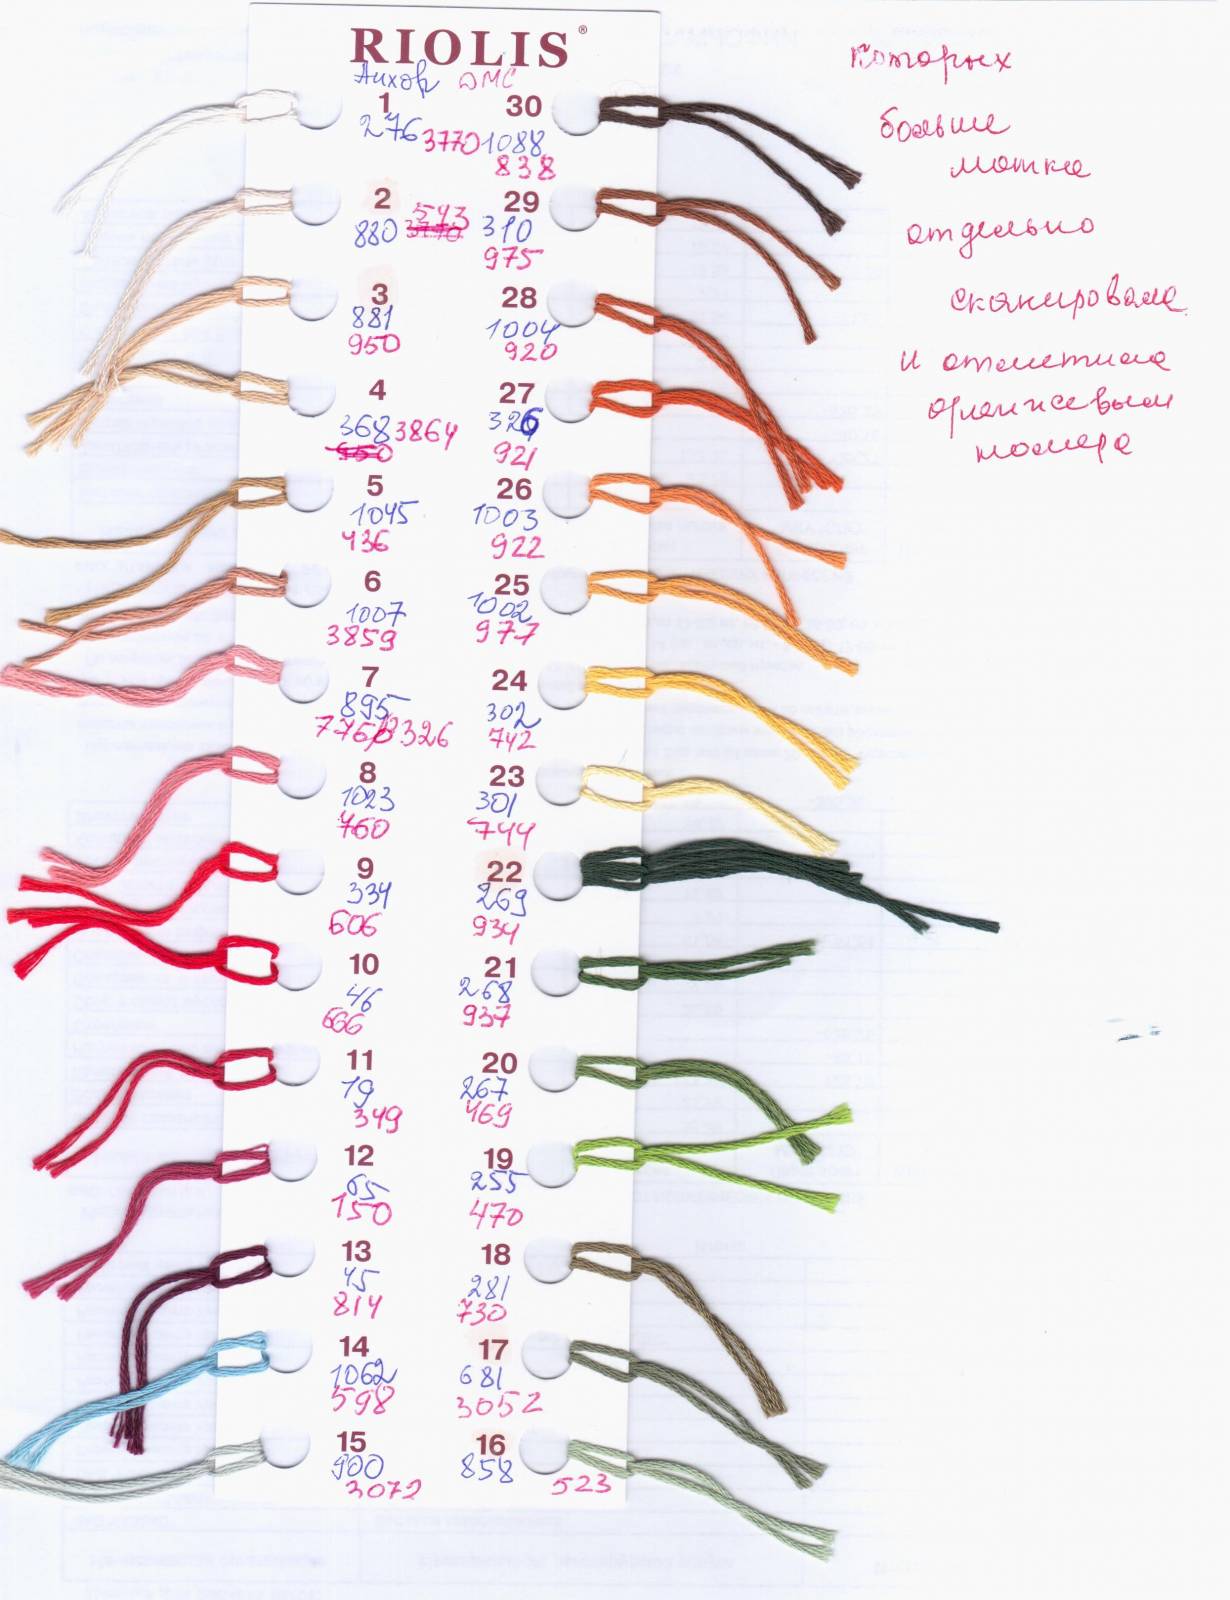 RIOLIS®
Анхор ДМС
1
276 3770
2
880 3770 543
3
881
950
4
368 3864
950
5
1045
436
6
1007
3859
7
895
776/3326
8
1023
760
9
334
606
10
46
666
11
19
349
12
65
150
13
45
814
14
1062
598
15
900
3072
30
1088
838
29
310
975
28
1004
920
27
326
921
26
1003
922
25
1002
977
24
302
742
23
301
744
22
269
934
21
268
937
20
267
469
19
255
470
18
281
730
17
681
3052
16
858
523
которых
больше
мотка
отдельно
сканировала
и отметила
оранжевым
номера